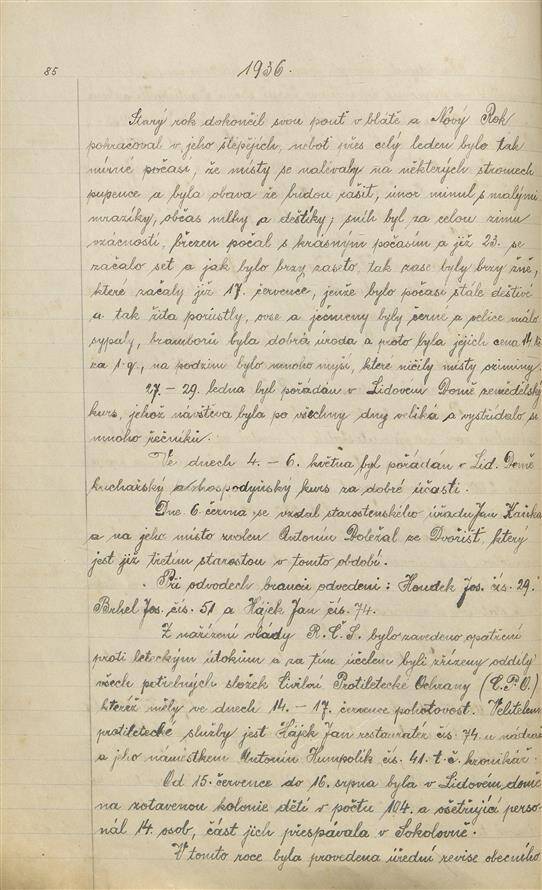 85
1936.
Starý rok dokončil svou pouť v blátě a Nový Rok
pokračoval v jeho štěpějích, neboť přes celý leden bylo tak
mírné počasí, že místy se nalévaly na některých stromech
pupence a byla obava že budou rašit, únor minul s malými
mrazíky, občas mlhy a deštíky; sníh byl za celou zimu
vzácností, březen počal s krásným počasím a již 23. se
začalo set a jak bylo brzy zaseto, tak zase byly brzy žně,
které začaly již 17. července, jenže bylo počasí stále deštivé
a tak žita porůstly, ovse a ječmeny byly černé a velice málo
sypaly, bramborů byla dobrá úroda a proto byla jejich cena 14 k
za 1 q, na podzim bylo mnoho myší, které ničily místy oziminy.
27. – 29. ledna byl pořádán v Lidovém Domě zemědělský
kurs, jehož návštěva byla po všechny dny veliká a vystřídalo se
mnoho řečníků.
Ve dnech 4. – 6. května byl pořádán v Lid. Domě
kuchařský a hospodyňský kurs za dobré účasti.
Dne 6. června se vzdal starostenského úřadu Jan
a na jeho místo zvolen Antonín Doležal ze Dvořišť, který
jest již třetím starostou v tomto období.
Při odvodech branců odvedeni: Houdek Jos. čís. 29.
Brhel Jos. čís. 51 a Hájek Jan čís. 74.
Z nařízení vlády R. Č. S. bylo zavedeno opatření
proti leteckým útokům a za tím účelem byli zřízeny oddíly
všech potřebných složek Civilní Protiletecké Ochrany (C.P.O.)
kteréž měly ve dnech 14. – 17. července pohotovost. Velitelem
protiletecké služby jest Hájek Jan restauratér čís. 74 u nádraží
a jeho náměstkem Antonín Humpolík čís. 41. t. č. kronikář.
Od 15. července do 16. srpna byla v Lidovém domě
na zotavenou kolonie dětí v počtu 104. a ošetřující perso-
nál 14. osob, část jich přespávala v Sokolovně.
V tomto roce byla provedena úřední revise obecního